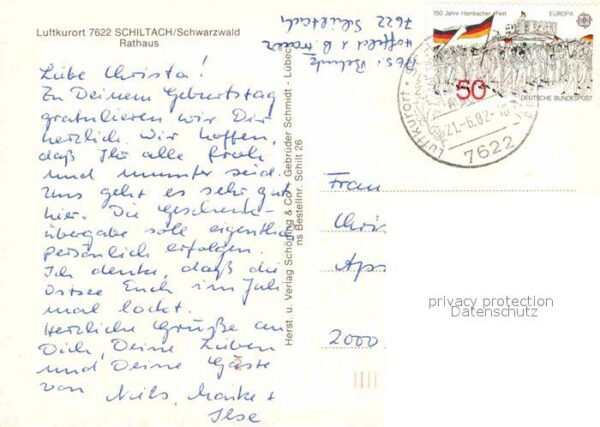 Luftkurort 7622 SCHILTACH/Schwarzwald
Rathaus
Liebe Christa!
Zu Deinem Geburtstag
gratulieren wir Dir
herzlich. Wir hoffen,
daß Ihr alle froh
und munter seid.
Uns geht es sehr gut
hier. Die Geschenk-
übergabe solle eigentlich
persönlich erfolgen.
Ich denke, daß die
Ostsee Euch im Juli
mal lockt.
Herzliche Grüße an
Dich, Deine Lieben
und Deine Gäste
von Nils, Maike +
Ilse
Herst. u. Verlag Schöning & Co · Gebrüder Schmidt - Lübeck
ns Bestellnr. Schilt 26
7622 Schiltach
150 Jahre Hambacher Fest
EUROPA
CEPT
50
DEUTSCHE BUNDESPOST
Luftkurort
21.-6.82
7622
Frau
Chris
Aps
2000
privacy protection
Datenschutz